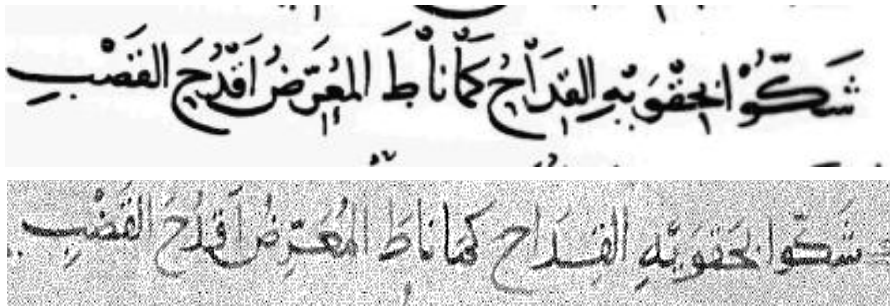 شَكُّوا بحَقْوَيْهِ القِدَاحَ كَمَا نَاطَ المُعَرِّضُ أَقْدُحَ القَضْبِ
شَكُّوا بحَقْوَيْهِ القِدَاحَ كَمَا نَاطَ المُعَرِّضُ أَقْدُحَ القَضْبِ